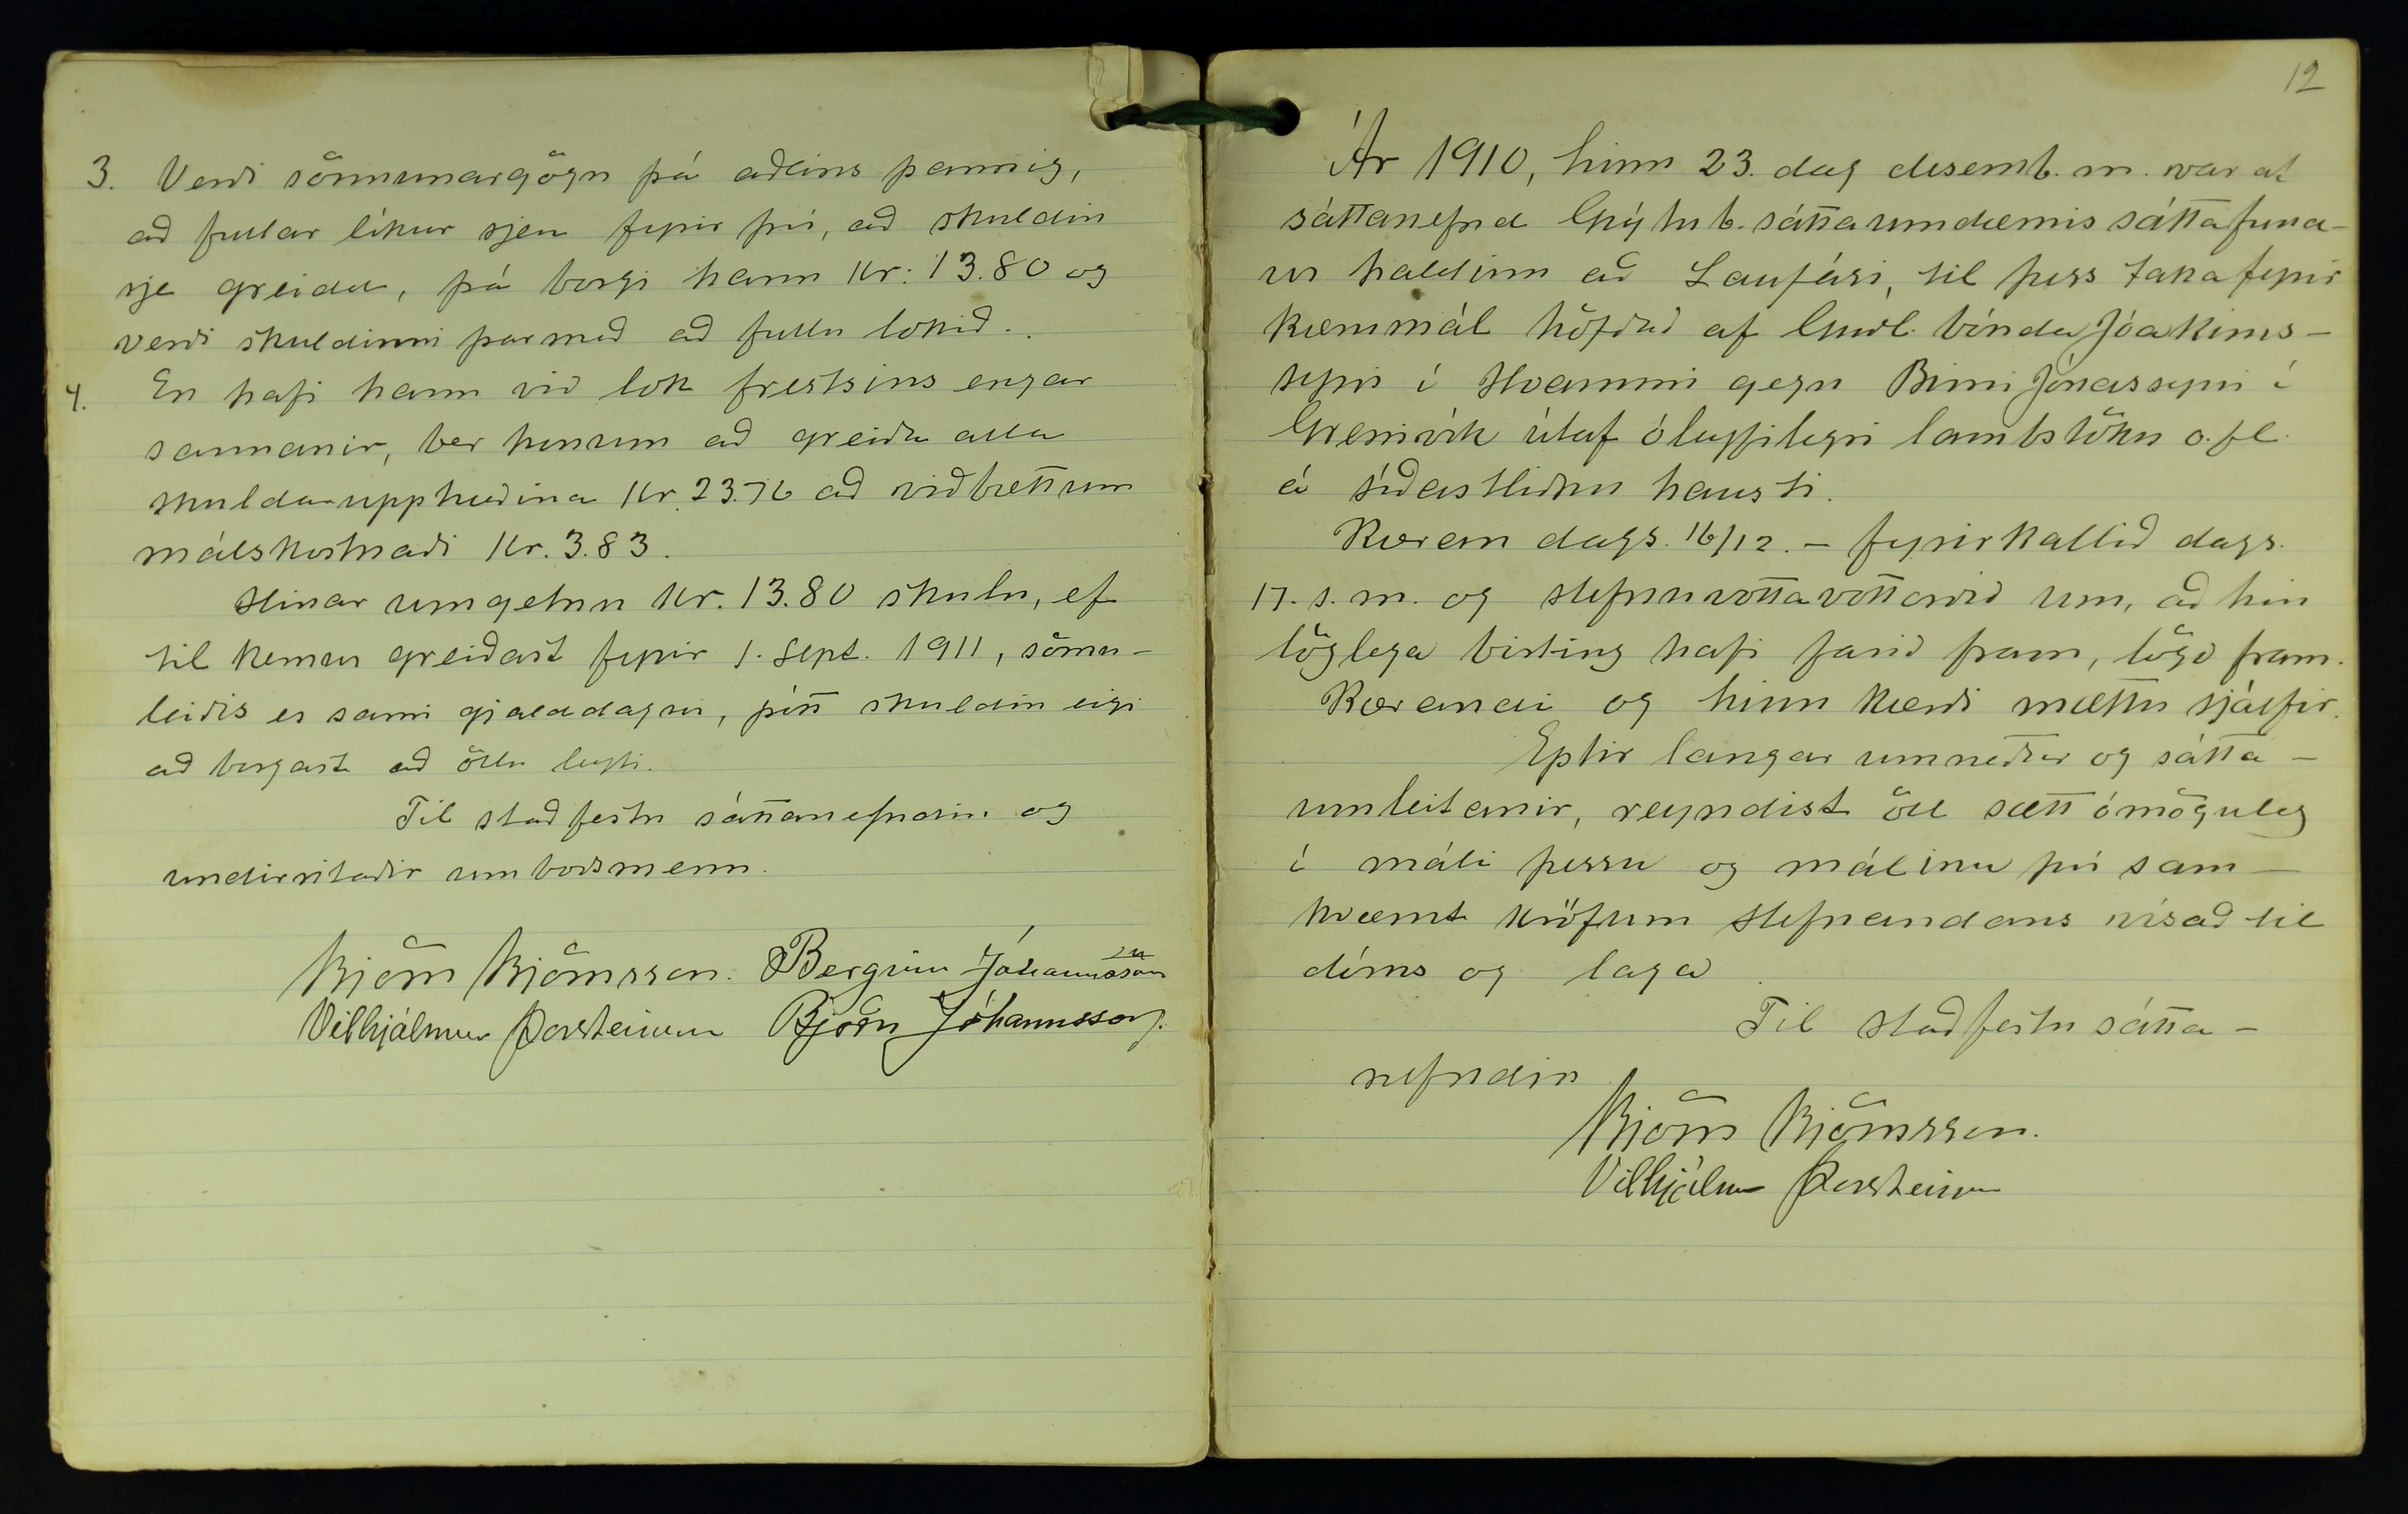 3. Verði sönnunargögn þá aðeins þannig,
að fullar líkur sjeu fyrir því, að skuldin
sje greidd, þá borgi hann Kr: 13.80 og
verði skuldinni þar með að fullu lokið.
4. En hafi hann við lok frestsins engar
sannanir, ber honum að greiða alla
skuldarupphæðina Kr. 23.76 að viðbættum
málskostnaði Kr. 3.83.
Hinar umgetnu Kr. 13.80 skulu, ef
til kemur greiðast fyrir 1. Sept. 1911, sömu-
leiðis er sami gjalddagur, þótt skuldin eigi
að borgast að öllu leyti.
Til staðfestu sáttanefndin og
undirritaðir umboðsmenn.
Björn Björnsson. Bergvin Jóhannsson
Vilhjálmur Þorsteinsson Björn Jóhannsson.
12
Ár 1910, hinn 23. dag desemb. m. var af
sáttanefnd Grýtub. sáttaumdæmis sáttafund-
ur haldinn að Laufási, til þess taka fyrir
kærumál höfðað af Guðl. bónda Jóakims-
syni í Hvammi gegn Birni Jónassyni í
Grenivík útaf ólöglegri lambstöku o. fl.
á síðastliðnu hausti.
Kæran dags. 16/12. – fyrirkallið dags.
17. s. m. og stefnuvottavottorð um, að hin
löglega birting hafi farið fram, lögð fram.
Kærandi og hinn kærði mættu sjálfir.
Eptir langar umræður og sátta-
umleitanir, reyndist öll sætt ómöguleg
í máli þessu og málinu því sam-
kvæmt kröfum stefnandans vísað til
dóms og laga.
Til staðfestu sátta-
nefndin
Björn Björnsson.
Vilhjálmur Þorsteinsson